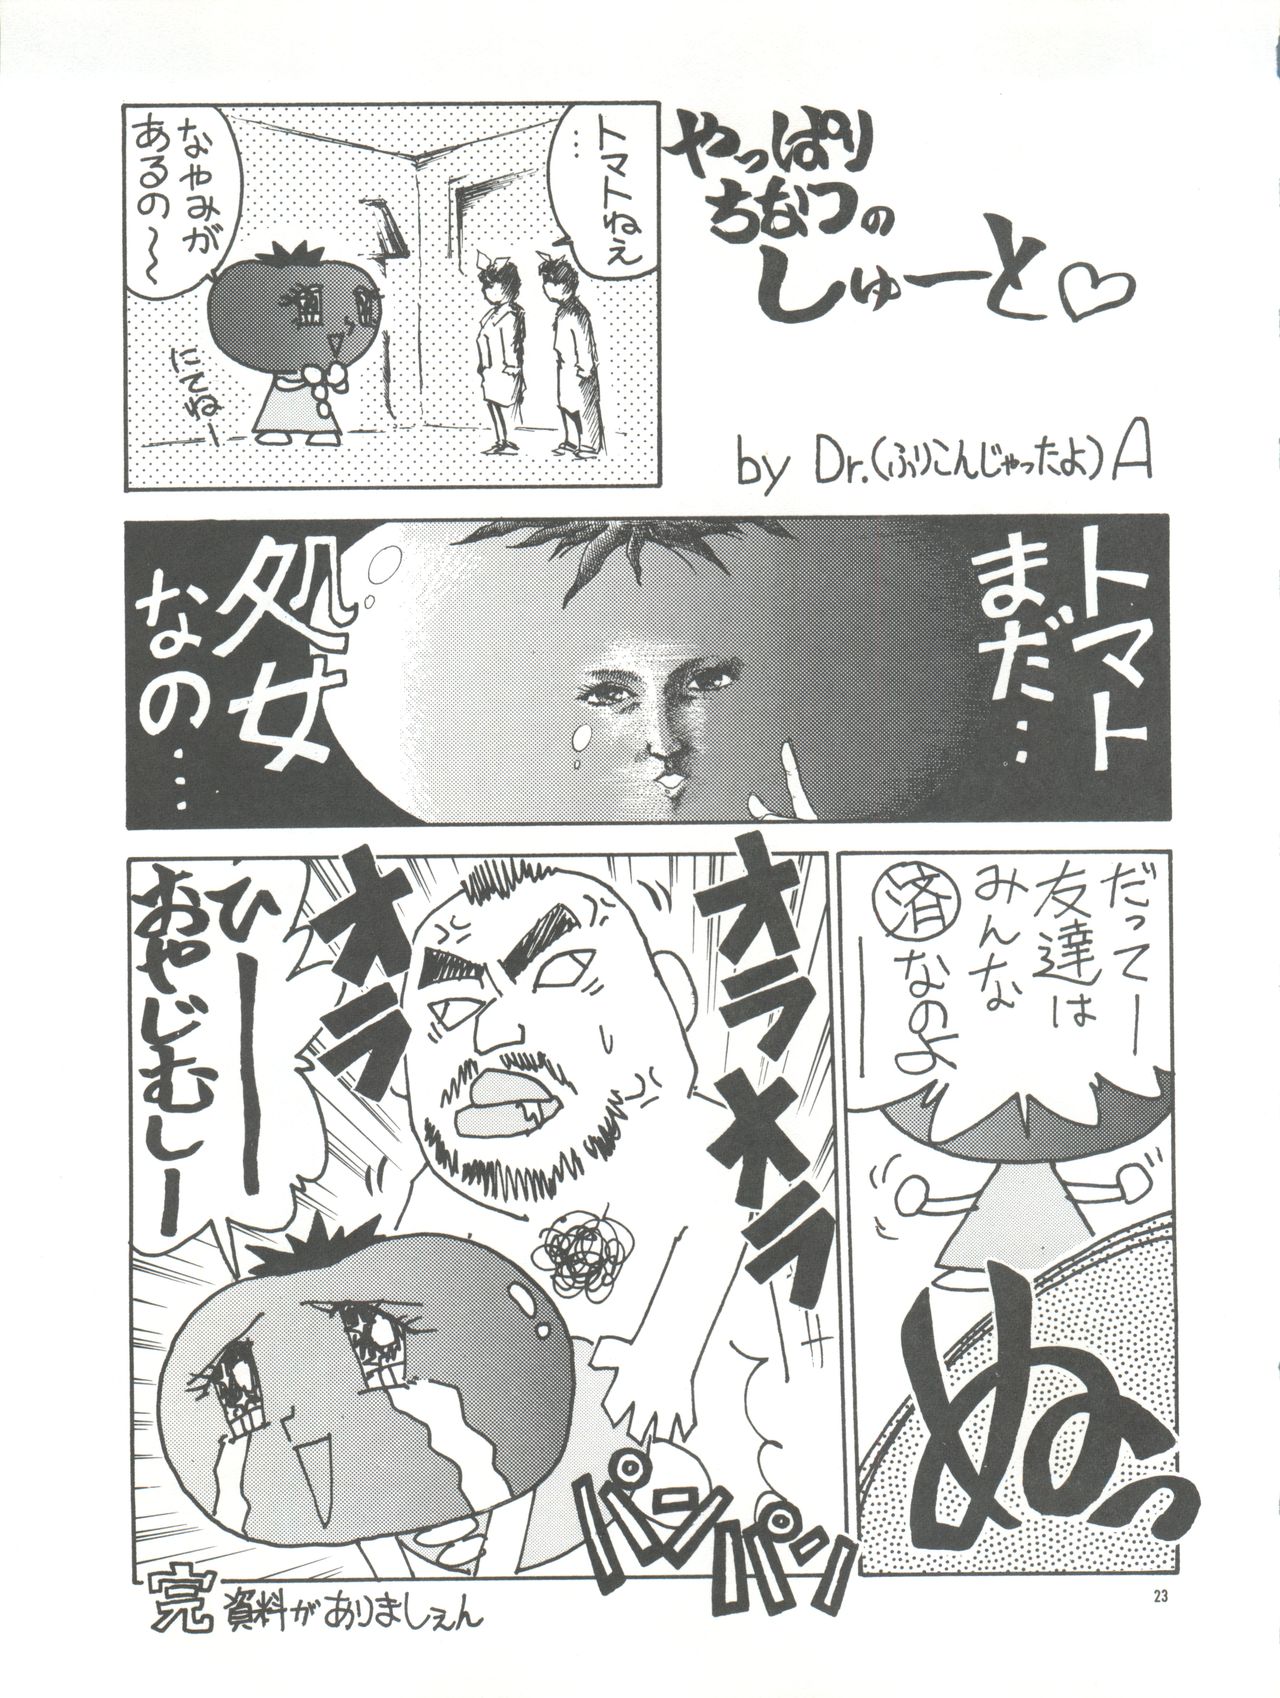 やっぱり
ちなつの
しゅーと♡
by Dr.(ふりこんじゃったよ)A
トマトねぇ
…
なやみが
あるの〜〜
にてねー
トマト
まだ…
処女
なの…
だってー
友達は
みんな
済なのよ
ー
ぬっ
オラオラ
オラオラ
ひーー
おやじむしー
パンパン
完
資料がありましぇん
23